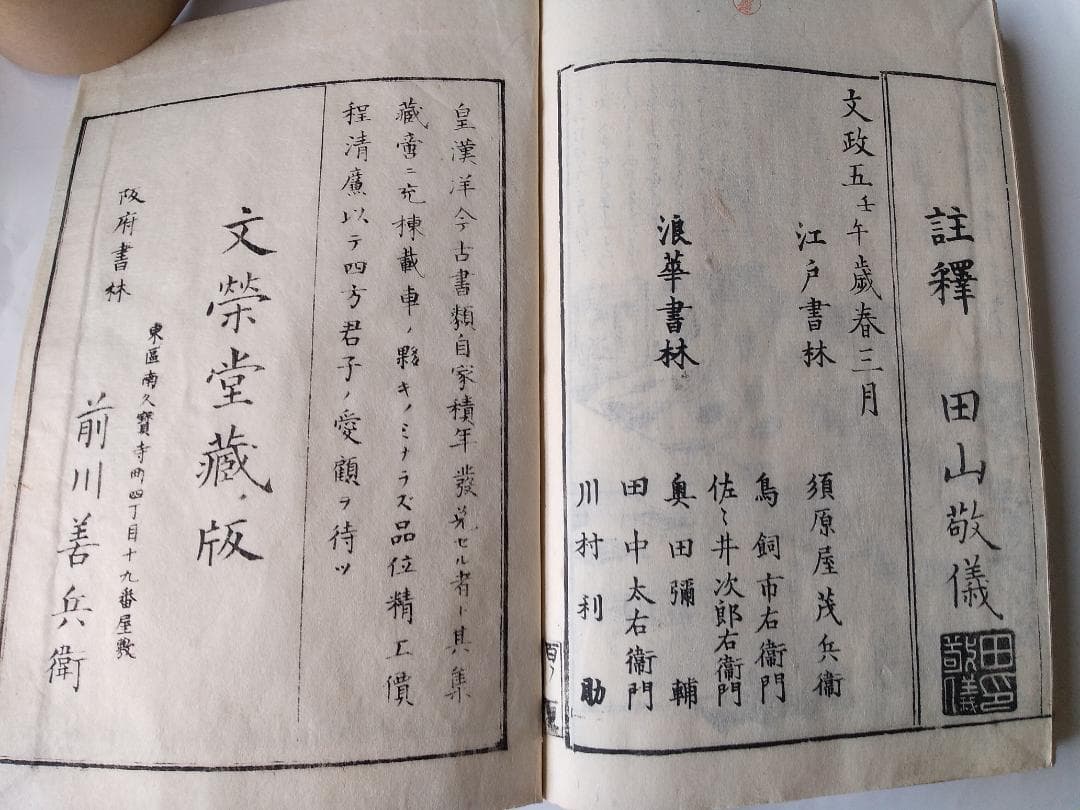 註釋 田山敬儀
田印
敬儀
文政五壬午歳春三月
江戸書林 須原屋茂兵衞
浪華書林 鳥飼市右衞門
佐々井次郎右衞門
奥田彌輔
田中太右衞門
川村利助
皇漢洋今古書類自家積年發兌セル者ト其集
藏啻ニ充棟載車ノ夥キノミナラズ品位精工價
程清廉以テ四方君子ノ愛顧ヲ待ツ
文榮堂藏版
阪府書林
東區南久寶寺町四丁目十九番屋敷
前川善兵衞